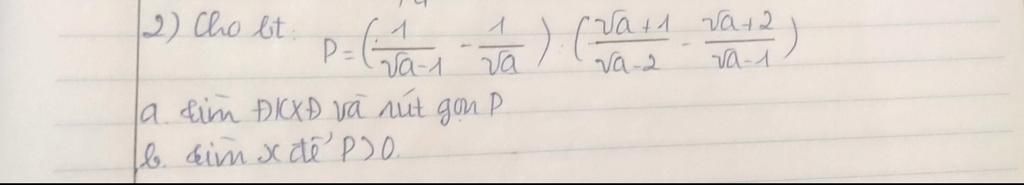 2) Cho bt: P = (1/(√a-1) - 1/√a) : ((√a+1)/(√a-2) - (√a+2)/(√a-1))
a. tìm ĐKXĐ và rút gọn P
b. tìm x để P>0.